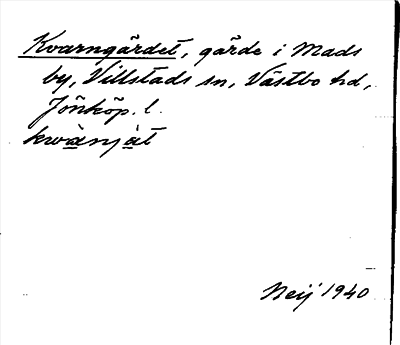 Kvarngärdet, gärde i Mads
by, Villstads sn, Västbo hd,
Jönköp. l.
kwànjàt
Neij 1940